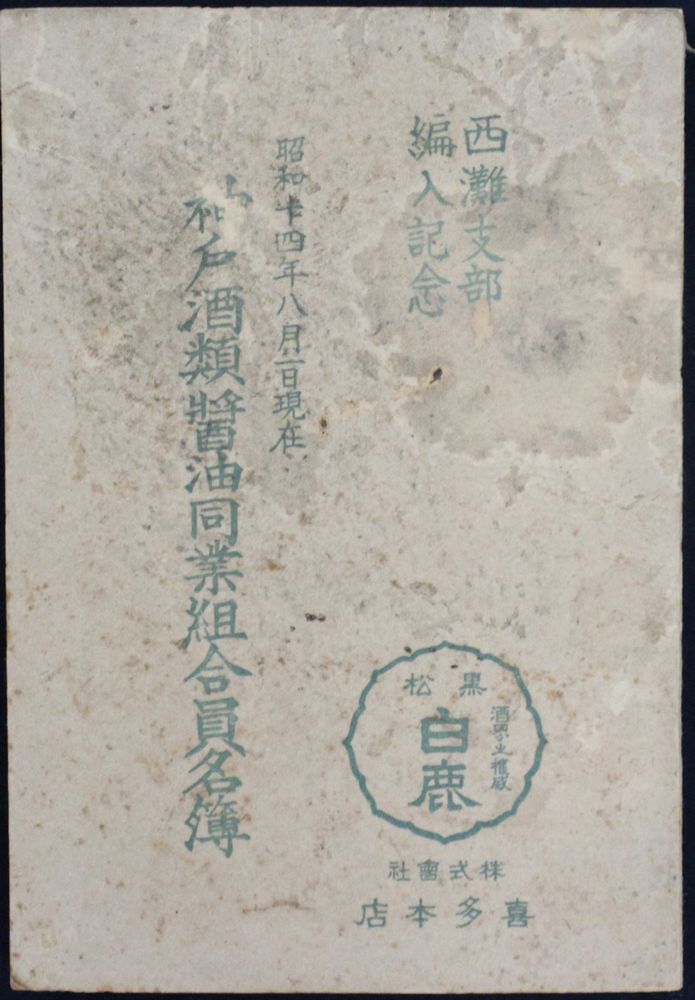 西灘支部
編入記念
昭和十四年八月一日現在
神戸酒類醬油同業組合員名簿
黒松
酒界之權威
白鹿
株式會社
喜多本店